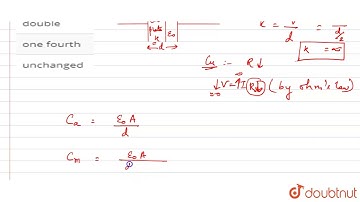 double
one fourth
unchanged
k ε₀
←d→
k = v/d = /d/2
k = ∞
Cu :- R↓
↓V=↑I R↓ (by ohm's law)
Ca = ε₀ A / d
Cm = ε₀ A
doubtnut